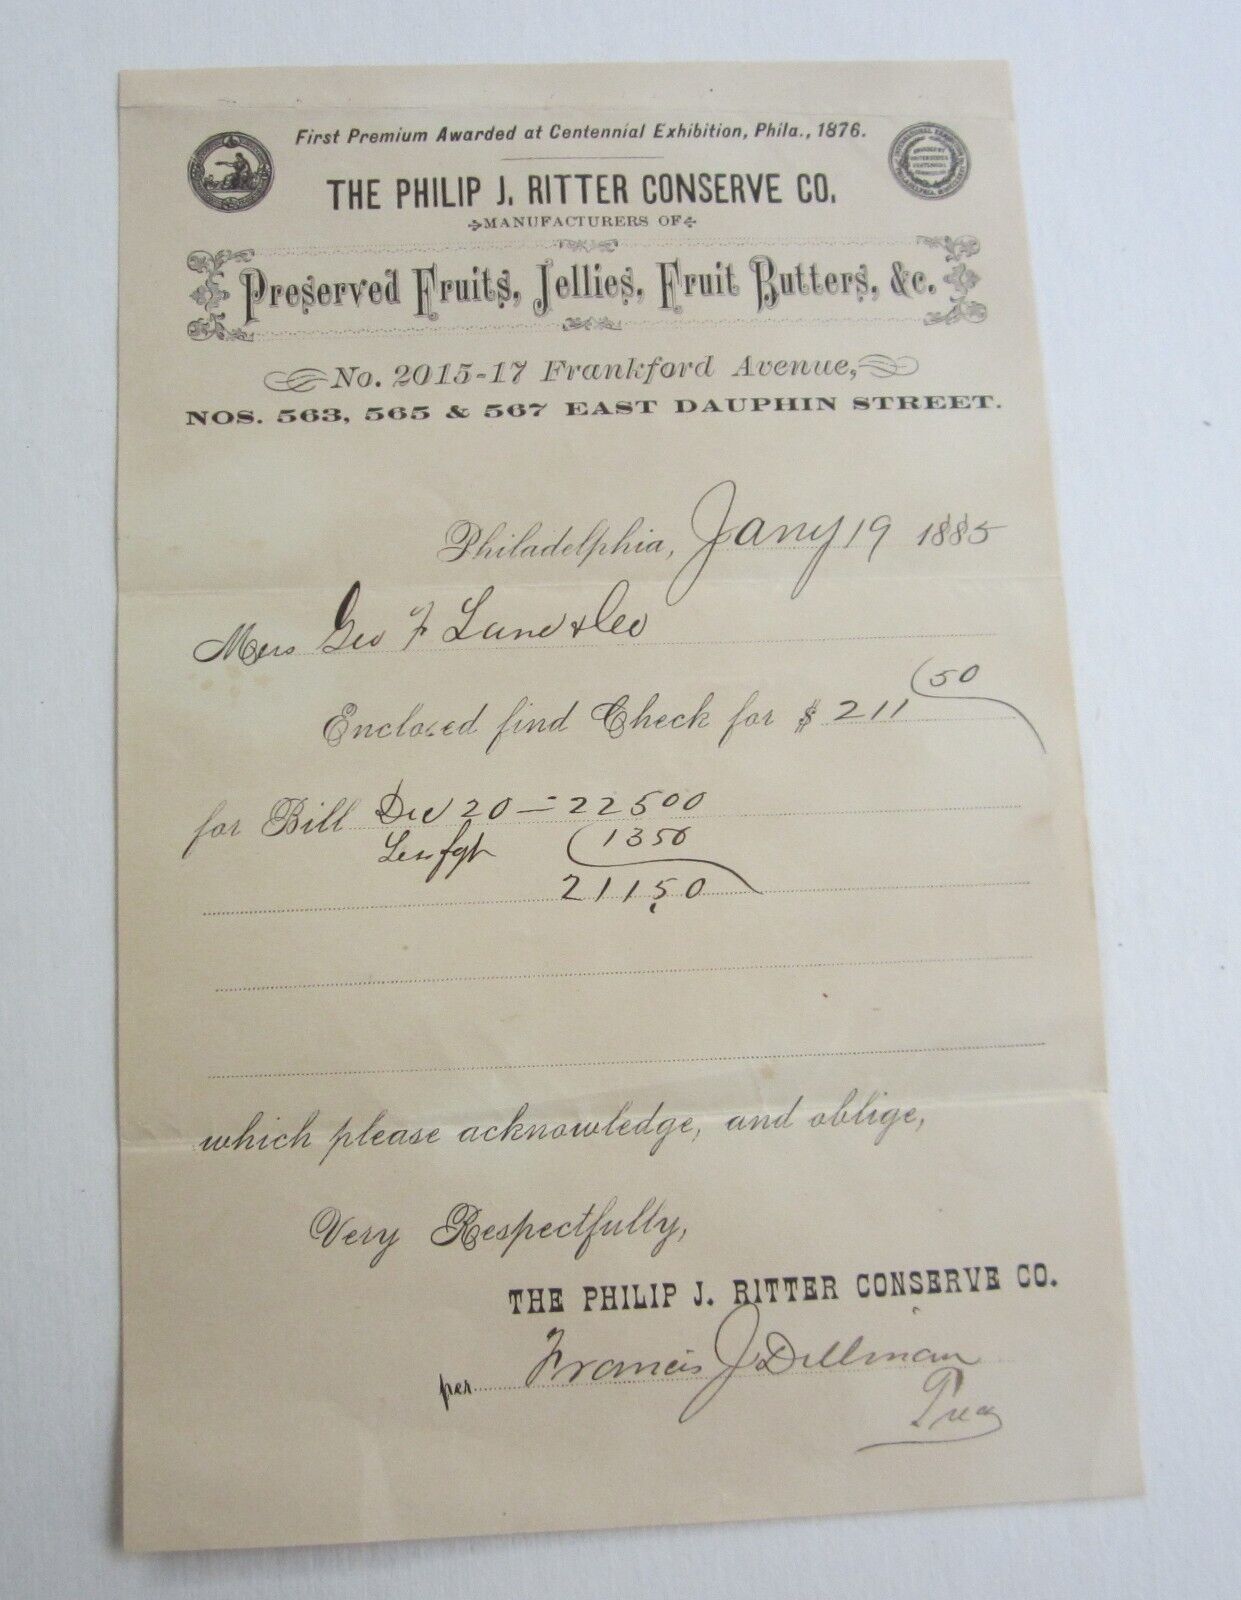 First Premium Awarded at Centennial Exhibition, Phila., 1876.
THE PHILIP J. RITTER CONSERVE CO.
MANUFACTURERS OF
Preserved Fruits, Jellies, Fruit Butters, &c.
No. 2015-17 Frankford Avenue,
NOS. 563, 565 & 567 EAST DAUPHIN STREET.
Philadelphia, Jany 19 1885
Mess Geo F Lane & Co
Enclosed find Check for $ 211 50
for Bill Dec 20 - 225 00
Less fgt 13 50
211 50
which please acknowledge, and oblige,
Very Respectfully,
THE PHILIP J. RITTER CONSERVE CO.
per Francis J Dillman
Treas